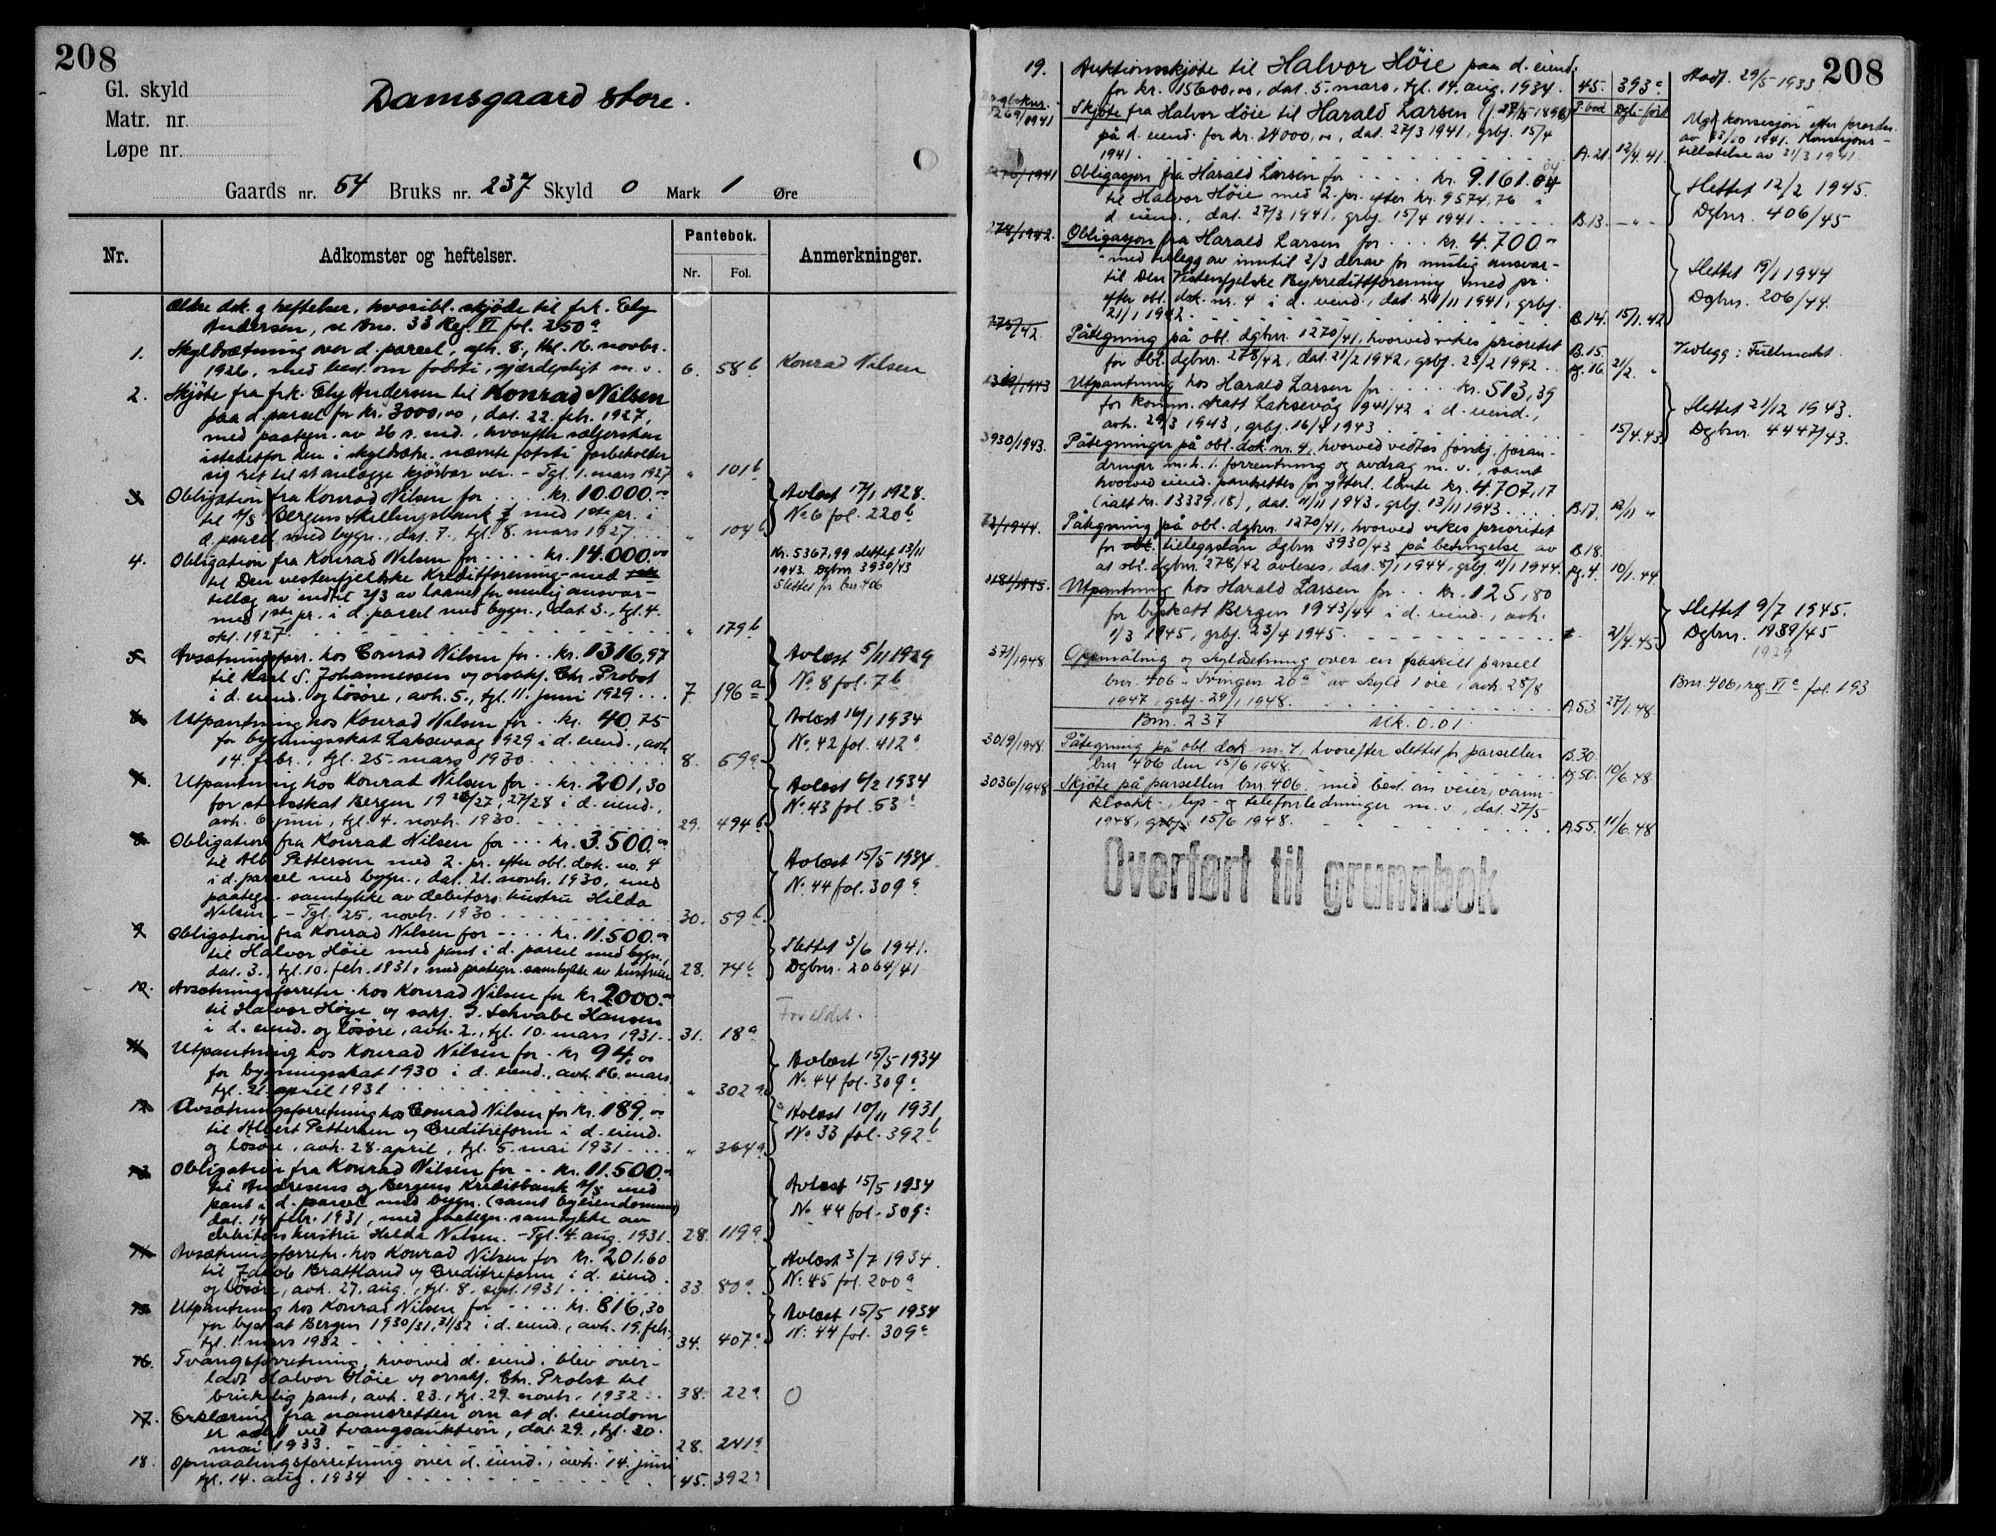 208
Gl. skyld
Matr. nr.
Løpe nr.
Damsgaard store.
Gaards nr. 54 Bruks nr. 237 Skyld 0 Mark 1 Øre
Nr.
Adkomster og heftelser.
Pantebok.
Nr. Fol.
Anmerkninger.
Ældre dok. og heftelser, hvoribl. skjøde til frk. Ely
Andersen, se Bnr. 33 Reg. VI fol. 250 a
1. Skyldsætning over d. parcel, afh. 8., tgl. 16. novbr.
1926, med best. om fotsti, gjærdepligt m. v. 6. 58 b Konrad Nilsen
2. Skjøte fra frk. Ely Andersen til Konrad Nilsen
paa d. parcel for kr. 3000,00, dat. 22. febr. 1927,
med paategn. av 26 s. md., hvorefter sælgersken
istedetfor den i skyldsætn. nævnte fotsti forbeholder
sig ret til at anlægge kjørbar vei. - Tgl. 1. mars 1927 " 101 b
3. Obligation fra Konrad Nilsen for .... kr. 10.000.00
til A/S Bergens Skillingsbank med 1ste pr. i
d. parcel med bygn., dat. 7., tgl. 8. mars 1927 ... " 104 b
Avlæst 17/1 1928.
No 6 fol. 220 b
4. Obligation fra Konrad Nilsen for .... kr. 14.000.00
til Den vestenfjelske Kreditforening - med
tillæg av indtil 2/3 av lånet for mulig ansvar -
med 1ste pr. i d. parcel med bygn., dat. 3., tgl. 4.
okt. 1927. " 179 b
Kr. 5367,99 slettet 13/11
1943. Dgbnr 3930/43
Slettet for bnr 406
5. Avsætningsforr. hos Conrad Nilsen for .. kr. 1316,97
til Karl S. Johannessen og orsakf. Chr. Probst
i d. eiend. og løsøre, avh. 5., tgl. 11. juni 1929 ... 7. 196 a
Avlæst 5/11 1929
No 8 fol. 7 b
6. Utpantning hos Konrad Nilsen for .. kr. 40,75
for bygningsskat Laksevaag 1929 i d. eiend., avh.
14. febr., tgl. 25. mars 1930. 8. 69 a
Avlæst 16/1 1934
No. 42 fol. 412 a
7. Utpantning hos Konrad Nilsen for .. kr. 201,30
for statsskat Bergen 1926/27, 27/28 i d. eiend.,
avh. 6 juni, tgl. 4. novbr. 1930. 29. 494 b
Avlæst 6/2 1934
No. 43 fol. 53 a
8. Obligation fra Konrad Nilsen for ... kr. 3.500.00
til Alb. Pettersen med 2. pr. efter obl. dok. no. 4
i d. parcel med bygn., dat. 21. novbr. 1930, med
paategn. samtykke av debitors hustru Hilda
Nilsen. - Tgl. 25. novbr. 1930 30. 59 b
Avlæst 15/5 1934
No. 44 fol. 309 a
9. Obligation fra Konrad Nilsen for .... kr. 11.500.00
til Halvor Høie med pant i d. parcel med bygn.,
dat. 3., tgl. 10. febr. 1931, med paategn. samtykke av hustruen 28. 74 b
Slettet 5/6 1941.
Dgbnr. 2064/41
10. Avsætningsforretn. hos Konrad Nilsen for kr. 2000.00
til Halvor Høye og sakf. G. Schwabe Hansen
i d. eiend. og løsøre, avh. 2., tgl. 10. mars 1931. 31. 18 a
Foreldet.
11. Utpantning hos Konrad Nilsen for . kr. 94.00
for bygningsskat 1930 i d. eiend., avh. 16. mars,
tgl. 21. april 1931 " 302 a
Avlæst 15/5 1934
No. 44 fol. 309 a
12. Avsætningsforretning hos Conrad Nilsen for kr. 189.00
til Albert Pettersen og Creditreform i d. eiend.
og løsøre, avh. 28. april, tgl. 5. mai 1931 .... " 364 a
Avlæst 10/11 1931
No. 33 fol. 392 b
13. Obligation fra Konrad Nilsen for .. kr. 11.500.00
til Andresens og Bergens Kreditbank A/S med
pant i d. parcel med bygn. (samt byeiendommen)
dat. 14. febr. 1931, med paategn. samtykke av
debitors hustru Hilda Nilsen. - Tgl. 4. aug. 1931. 28. 119 a
Avlæst 15/5 1934
No. 44 fol. 309 a
14. Avsætningsforretn. hos Konrad Nilsen for kr. 201.60
til Jakob Brattland og Creditreform i d. eiend.
og løsøre, avh. 27. aug., tgl. 8. sept. 1931 33. 80 a
Avlæst 3/7 1934.
No. 45 fol. 200 a
15. Utpantning hos Konrad Nilsen for .... kr. 816,30
for byskat Bergen 1930/31, 31/32 i d. eiend., avh. 19. febr.,
tgl. 1. mars 1932 34. 407 a
Avlæst 15/5 1934
No. 44 fol. 309 a
16. Tvangsforretning, hvorved d. eiend. blev over-
ladt Halvor Høie og orsakf. Chr. Probst til
brukelig pant, avh. 23., tgl. 29. novbr. 1932 .. 38. 22 a
17. Erklæring fra namsretten om at d. eiendom
er solgt ved tvangsauktion, dat. 29., tgl. 30.
mai 1933. 28. 241 a
18. Opmaalingsforretning over d. eiend., avh. 14. juni
tgl. 14. aug. 1934 45. 392 a
208
19. Auktionsskjøte til Halvor Høie paa d. eiend.
for kr. 15600,00, dat. 5. mars, tgl. 14. aug. 1934. 45. 393 a Stadf. 29/5 1933
P.bod Dgb.ført
1269/1941 Skjøte fra Halvor Høie til Harald Larsen (f. 27/5 1898)
på d. eiend. for kr. 24000,00, dat. 27/3 1941, grbj. 15/4
1941. A.21. 12/4.41.
Mgl. konsesjon efter forordn.
av 23/10 1941. Konsesjons-
tillatelse av 31/3 1941.
1270/1941 Obligasjon fra Harald Larsen for .... kr. 9.161.04
til Halvor Høie med 2. pr. efter kr. 9574,76 i
d. eiend., dat. 27/3 1941, grbj. 15/4 1941. B.13. - " -
Slettet 12/2 1945.
Dgbnr. 406/45
278/1942. Obligasjon fra Harald Larsen for ... kr. 4.700.00
- med tillegg av inntil 2/3 derav for mulig ansvar -
til Den Vestenfjelske Bykredittforening med pr.
efter obl. dok. nr. 4 i d. eiend., dat. 21/11 1941, grbj.
21/1 1942. B.14. 15/1.42
Slettet 19/1 1944
Dgbnr. 206/44.
775/42. Påtegning på obl. dgbnr. 1270/41, hvorved vikes prioritet
for obl. dgbnr. 278/42, dat. 21/2 1942, grbj. 23/2 1942. B.15. pg. 16. 21/2. "
Vedlegg: Fullmakt.
1319/1943 Utpantning hos Harald Larsen for .... kr. 513,39
for komm. skatt Laksevåg 1941/42 i d. eiend.,
avh. 29/3 1943, grbj. 16/4 1943 15/4.43.
Slettet 21/12 1943.
Dgbnr. 4447/43.
3930/1943. Påtegninger på obl. dok. nr. 4, hvorved vedtas forskj. foran-
dringer m. h. t. forrentning og avdrag m. v., samt
hvorved eiend. pantsettes for ytterl. lånte kr. 4.707,17
(ialt kr. 13339,18), dat. 11/11 1943, grbj. 13/11 1943. B.17. 12/11 "
72/1944. Påtegning på obl. dgbnr. 1270/41, hvorved vikes prioritet
for tilleggslån dgbnr 3930/43 på betingelse av
at obl. dgbnr. 278/42 avleses, dat. 5/1 1944, grbj. 11/1 1944. B.18. pg. 4. 10/1.44
1181/1945. Utpantning hos Harald Larsen for .. kr. 125,80
for byskatt Bergen 1943/44 i d. eiend., avh.
1/3 1945, grbj. 23/4 1945. 21/4.45
Slettet 9/7 1945.
Dgbnr. 1939/45
1939
371/1948 Oppmåling og skyldsetning over en fraskilt parsell
bnr. 406 „Svingen 20 a" av skyld 1 øre, avh. 28/8
1947, grbj. 29/1 1948. A.53. 27/1.48.
Bnr. 406, reg. VI c fol. 193
Bnr. 237 Mk. 0.01.
3019/1948. Påtegning på obl dok. nr. 4, hvorefter slettet for parsellen
bnr 406 den 15/6 1948. B.30. pg. 50. 10/6.48
3036/1948 Skjøte på parsellen bnr. 406. med best. om veier, vann-
kloakk-, lys- og telefonledninger m. v., dat. 27/5
1948, grbj. 15/6 1948. A.55. 11/6.48
Overført til grunnbok